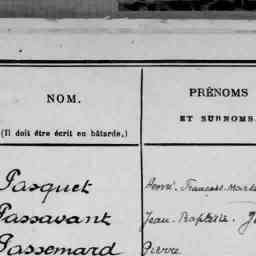 NOM. PRÉNOMS
ET SURNOMS.
(Il doit être écrit en bâtarde.)
Pasquet Henri - François
Passavant Jean - Baptiste -
Passemard Pierre